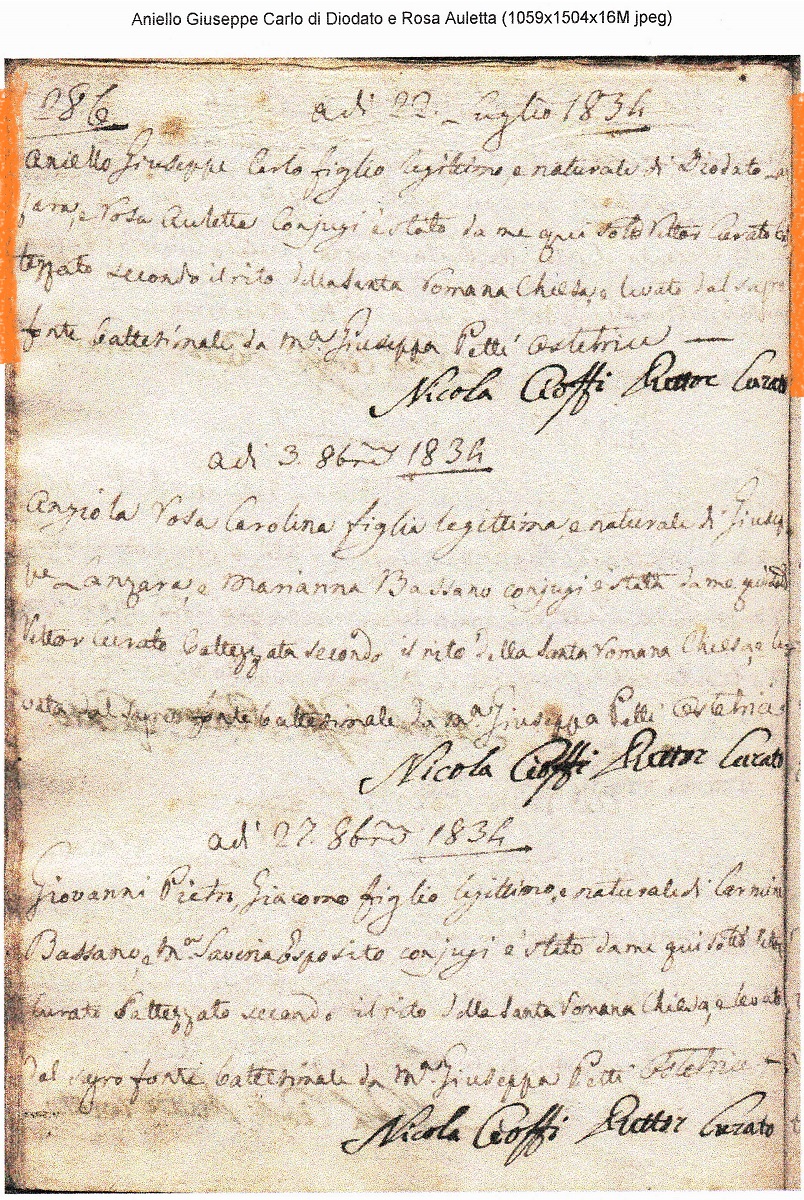 Aniello Giuseppe Carlo di Diodato e Rosa Auletta (1059x1504x16M jpeg)
286
adi 22. Luglio 1834
Aniello Giuseppe Carlo figlio legittimo, e naturale di Diodato
zara, e Rosa Auletta Conjugi è stato da me qui sotto Rettor Curato
tezzato secondo il rito della Santa Romana Chiesa, e levato dal sagro
fonte battesimale da M.ª Giuseppa Petti Ostetrica —
Nicola Cioffi Rettor Curato
adi 3. 8bre 1834
Angiola Rosa Carolina figlia legittima, e naturale di Giusep
pe Lanzara, e Marianna Bassano conjugi è stata da me qui sotto
Rettor Curato battezzata secondo il rito della Santa Romana Chiesa, e le
vata dal sagro fonte battesimale da Mª Giuseppa Petti Ostetrica
Nicola Cioffi Rettor Curato
adi 27. 8bre 1834
Giovanni Pietro, Giacomo figlio legittimo, e naturale di Carmine
Bassano, e Mª Saveria Esposito conjugi è stato da me qui sotto Rettor
Curato Battezzato secondo il rito della Santa Romana Chiesa, e levato
dal sagro fonte battesimale da Mª Giuseppa Petti Ostetrica —
Nicola Cioffi Rettor Curato